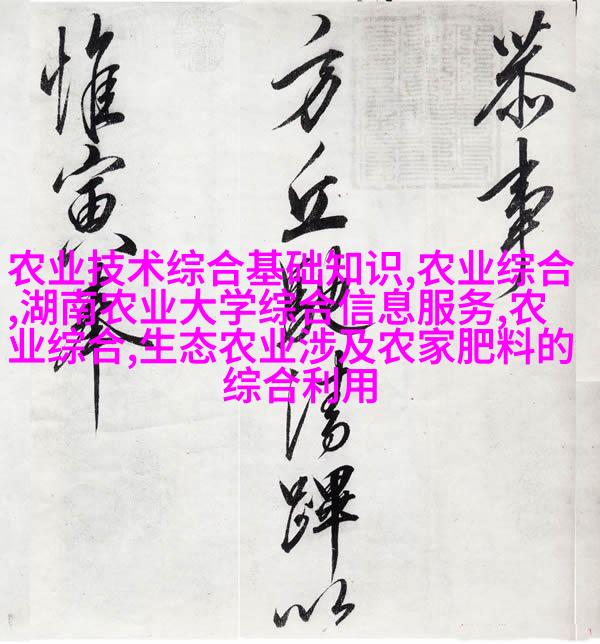 恭事
方丘清蹕以
惟寅奉
农业技术综合基础知识,农业综合
,湖南农业大学综合信息服务,农
业综合,生态农业涉及农家肥料的
综合利用